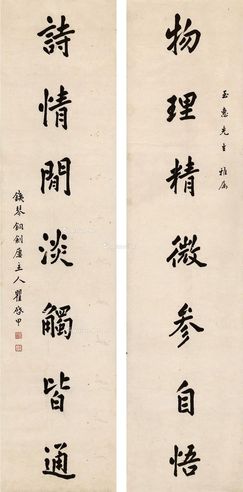 玉惠先生雅屬
物理精微參自悟
詩情閒淡觸皆通
鐵琴銅劍廔主人瞿啟甲